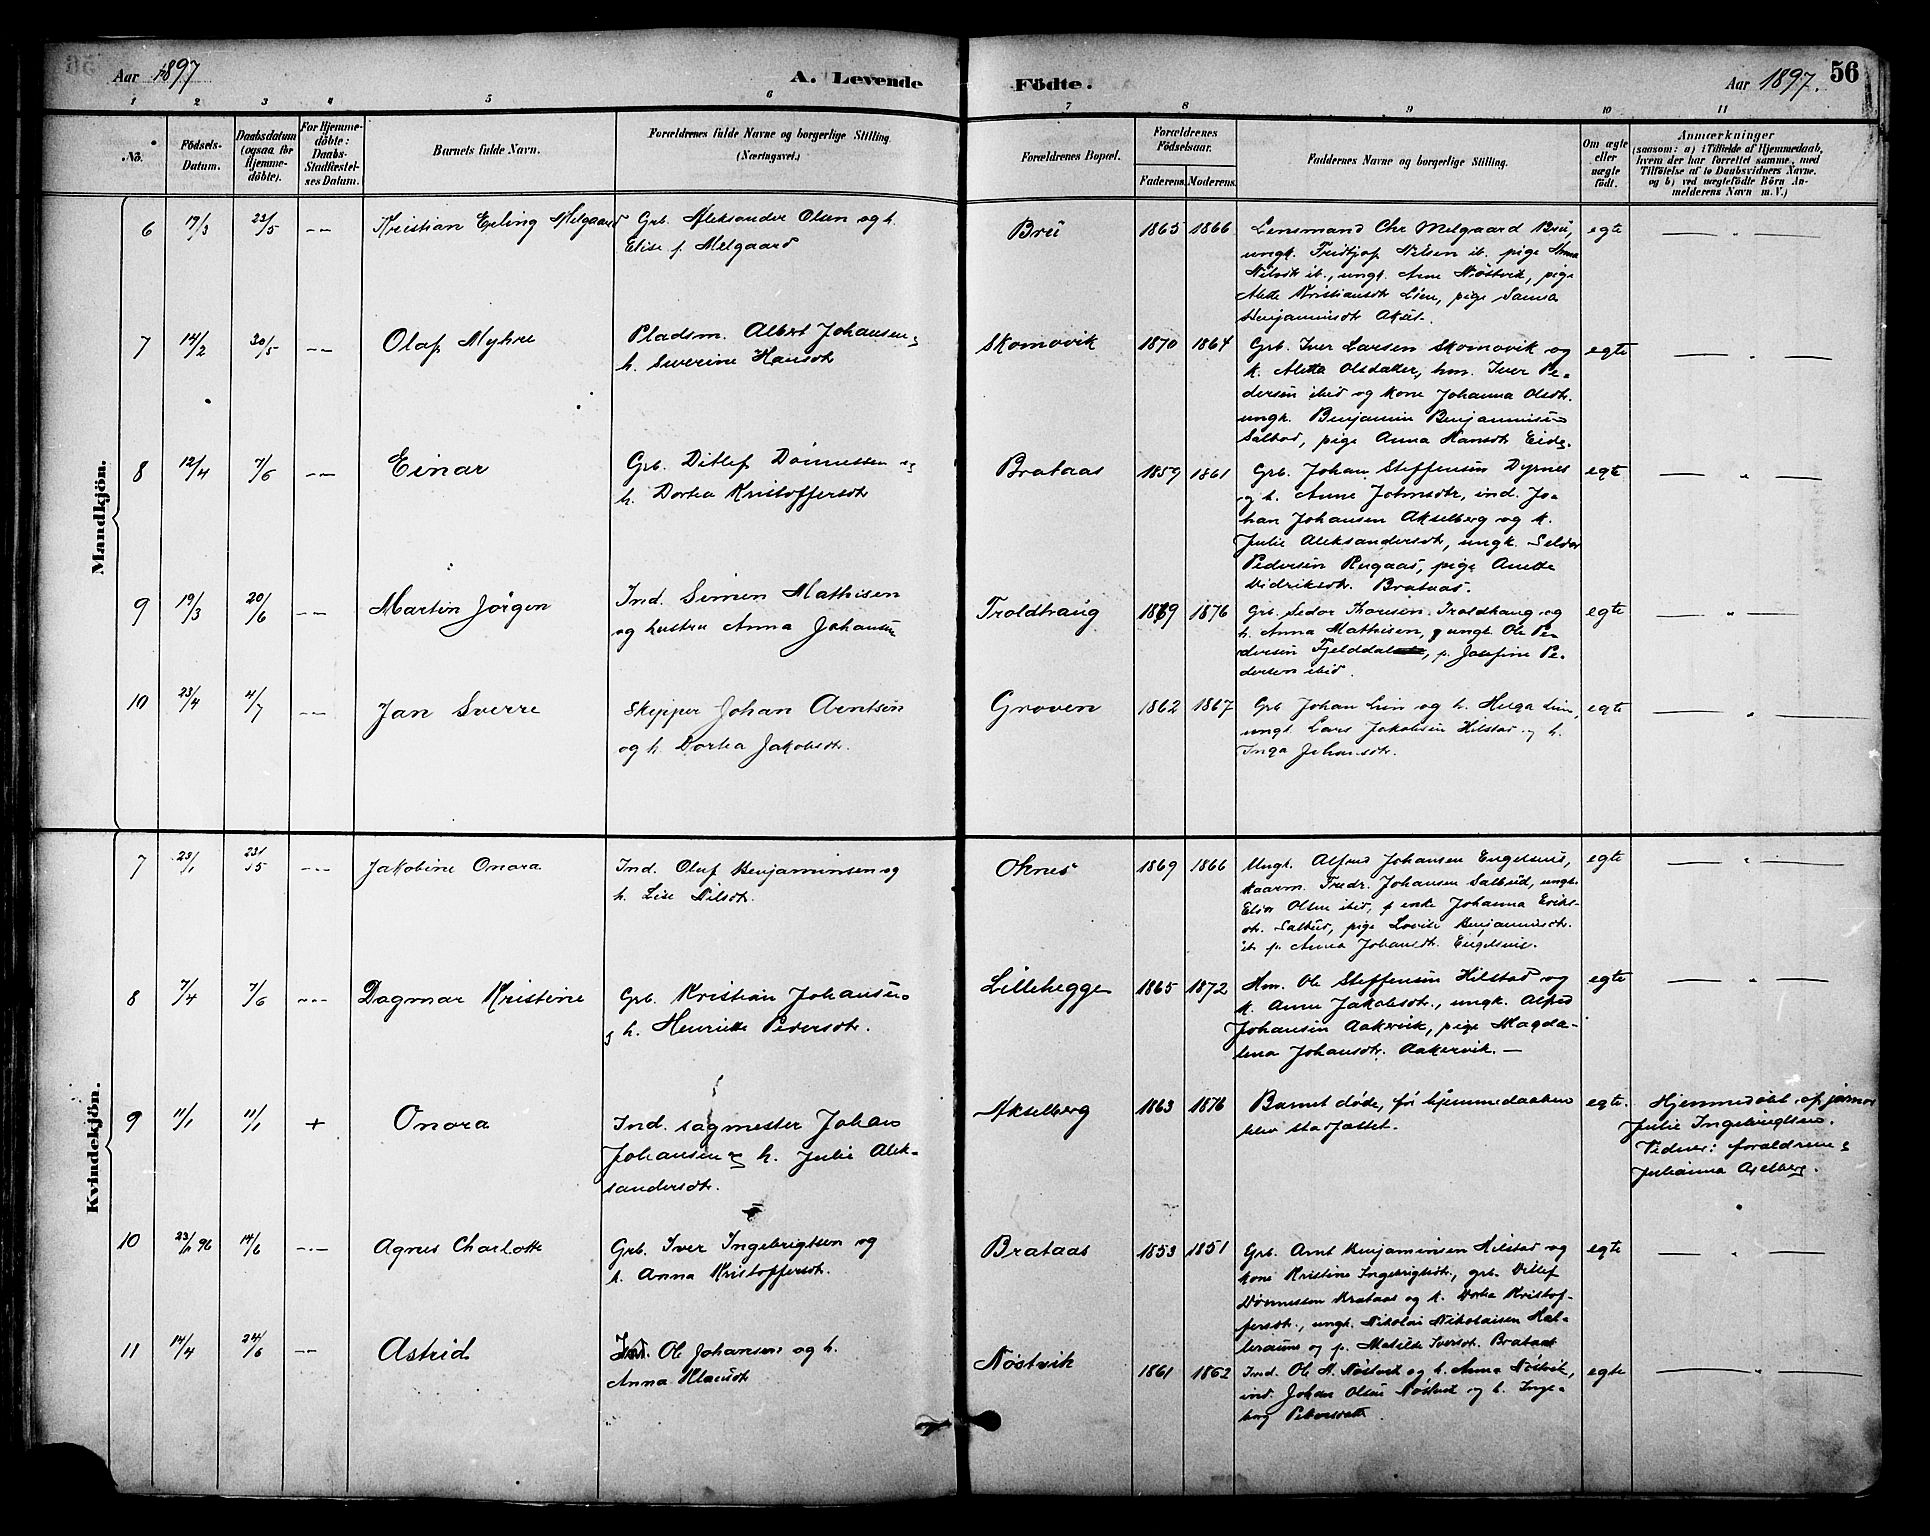 Aar 1897
A. Levende
Födte.
Aar 1897.
56
1 2 3 4 5 6 7 8 9 10 11
No.
Födsels-
Datum.
Daabsdatum
(ogsaa for
Hjemme-
döbte).
For Hjemme-
döbte:
Daabs-
Stadfæstel-
ses Datum.
Barnets fulde Navn.
Forældrenes fulde Navne og borgerlige Stilling.
(Næringsvei.)
Forældrenes Bopæl.
Forældrenes
Födselsaar.
Faderens. Moderens.
Faddernes Navne og borgerlige Stilling.
Om ægte
eller
uægte
födt.
Anmærkninger
(saasom: a) i Tilfælde af Hjemmedaab,
hvem der har forrettet samme, med
Tilföielse af to Daabsvidners Navne.
og b) ved uægtefödte Börn An-
melderens Navn m. V.)
Mandkjön.
6 17/3 23/5 -- Kristian Erling Melgaard
Grb. Aleksander Olsen og h.
Elise f. Melgaard
Brü 1865 1866
Lensmand Chr Melgaard Brü,
ungk. Fridtjof Nilsen ib. pige Anna
Nilsdt ib., ungk. Arne Nöstvik, pige
Alette Kristiansdt Lien, pige
Benjaminsdt
egte — " —
7 14/2 30/5 -- Olaf Myhre
Pladsm. Albert Johansen og
h. Severine Hansdt
Skomovik 1870 1864
Grb. Iver Larsen Skomovik og
k. Aletta Olsdatter, hm. Iver Pe-
dersen ibid og kone Johanna Olsdt.
ungk. Benjamin Benjaminsen
pige Anna Hansdt Eide
egte — " —
8 12/4 7/6 -- Einar
Grb. Ditlef Dönnessen og
h. Dortea Kristoffersdt
Brataas 1859 1861
Grb. Johan Steffensen Dyrnes
og h. Anne Johnsdtr, ind. Jo-
han Johansen Akselberg og k.
Julie Aleksandersdt, ungk.
Pedersen Rugaas, pige Anette
Didriksdt. Brataas.
egte — " —
9 19/3 20/6 -- Martin Jörgen
Ind. Simen Mathisen
og hustru Anna Johansen
Troldhaug 1869 1876
Grb. Sedor Thoresen Troldhaug og
h. Anna Mathisen, ungk Ole Pe-
dersen Fjelddal, p. Josefine Pe-
dersen ibid.
egte — " —
10 23/4 4/7 -- Jan Sverre
Skipper Johan Arntsen
og h. Dortea Jakobsdt.
Groven 1862 1867
Grb Johan Lien og h. Helga Lien,
ungk Lars Jakobsen Hilstad og h.
Inga Johansdtr.
egte — " —
Kvindekjön.
7 23/1 23/5 -- Jakobine Onora
Ind. Oluf Benjaminsen og
h. Lise Nilsdt.
Oknes 1869 1866
Ungk. Alfred Johansen Engelsnes,
kaarm. Fredr. Johansen Salbud, ungk.
Olsen ibid, enke Johanna Eriks-
dt. Salbud, pige Benjaminsdt.
ib p. Anna Johansdt. Engelsnes.
egte — " —
8 7/4 7/6 -- Dagmar Kristine
Grb. Kristian Johansen
og h. Henriette Pedersdt.
Lillehegge 1865 1872
Hm. Ole Steffensen Hilstad og
k. Anne Jakobsdt., ungk. Alfred
Johansen Aakervik, pige Magda-
lena Johansdt. Aakervik. —
egte — " —
9 11/1 11/1 + Onora
Ind. sagmester Johan
Johansen og h. Julie Alek-
sandersdt.
Akselberg 1863 1876
Barnet döde, för hjemmedaaben
blev stadfæstet.
egte.
Hjemmedöbt af jormor
Julie Ingebrigtsen.
Vidner: forældrene og
Julianna Axelberg.
10 23/ 96 14/6 -- Agnes Charlotte
Grb. Iver Ingebrigtsen og
h. Anna Kristoffersdt.
Brataas 1853 1851
Grb. Arnt Benjaminsen Hilstad og
kone Kristine Ingebrigtsdt., grb. Ditlef
Dönnessen Brataas og k. Dortea Kristof-
fersdt., ungk. Nikolai Nikolaisen Hal-
og p. Matilde Iversdt. Brataas
egte — " —
11 14/4 24/6 -- Astrid
Ind. Ole Johansen og h.
Anna Klausdt
Nöstvik 1861 1862
Ind. Ole og h. Anna Nöstvik,
ind. Johan Olsen og h. Inge-
borg Petersdatter.
egte — " —